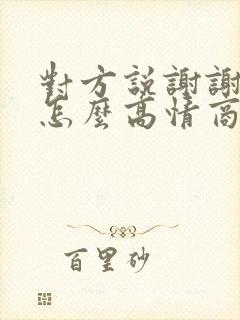 對方説謝謝
怎麼高情商
百里砂